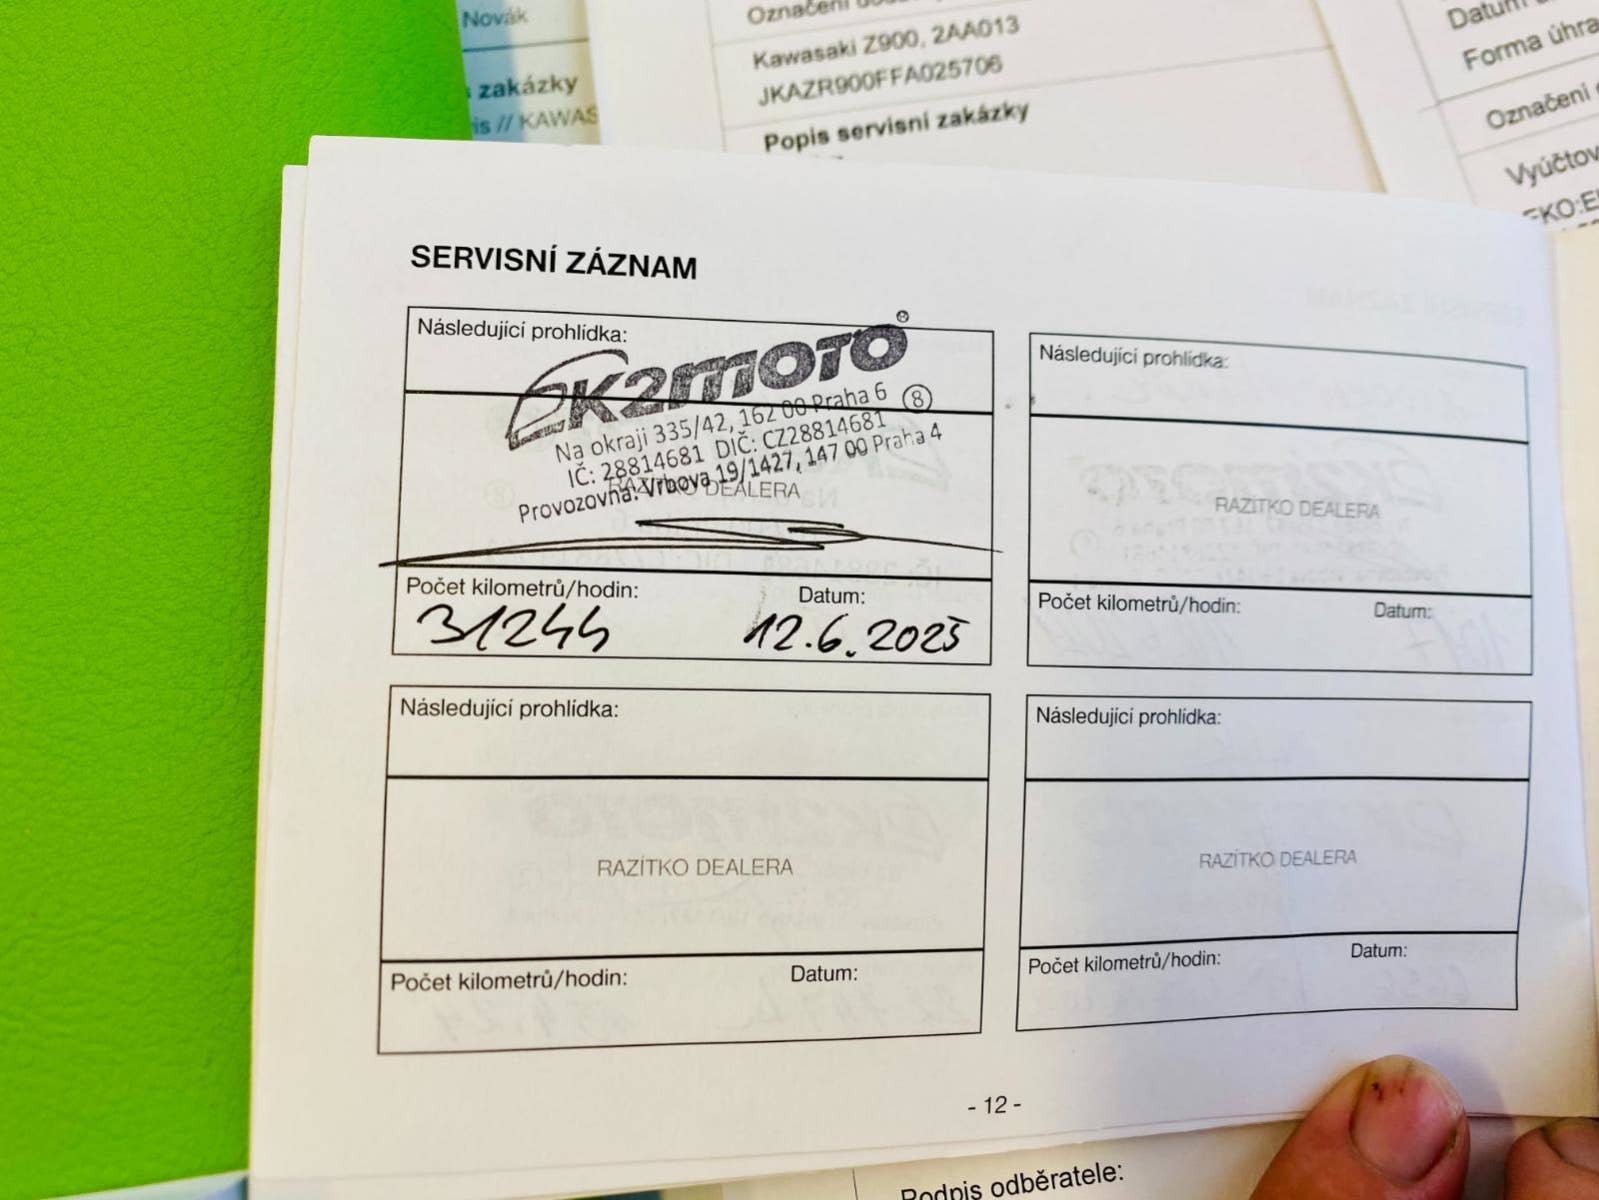 Novák
zakázky
is // KAWAS
Označení
Kawasaki Z900, 2AA013
JKAZR900FFA025706
Popis servisní zakázky
Datum
Forma úhra
Označení
Vyúčtov
SERVISNÍ ZÁZNAM
Následující prohlídka:
2K2MOTO®
Na okraji 335/42, 162 00 Praha 6 8
IČ: 28814681 DIČ: CZ28814681
Provozovna: Vrbova 19/1427, 147 00 Praha 4
RAZÍTKO DEALERA
Počet kilometrů/hodin: Datum:
31244 12.6.2025
Následující prohlídka:
RAZÍTKO DEALERA
Počet kilometrů/hodin: Datum:
Následující prohlídka:
RAZÍTKO DEALERA
Počet kilometrů/hodin: Datum:
Následující prohlídka:
RAZÍTKO DEALERA
Počet kilometrů/hodin: Datum:
- 12 -
Podpis odběratele: